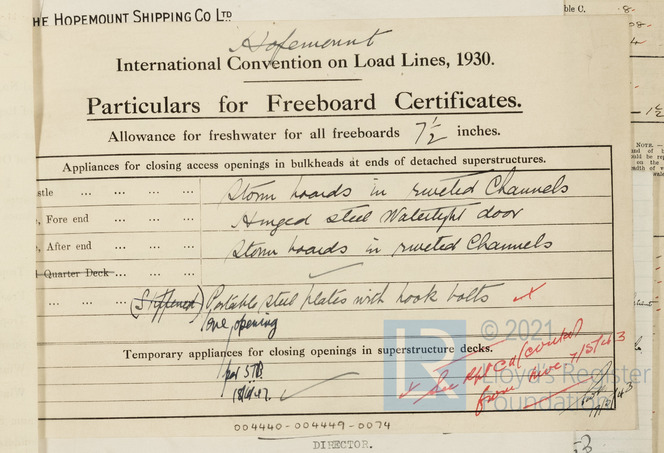 HE HOPEMOUNT SHIPPING CO LTD
ble C.
Hopemount
International Convention on Load Lines, 1930.
Particulars for Freeboard Certificates.
Allowance for freshwater for all freeboards 7½ inches.
Appliances for closing access openings in bulkheads at ends of detached superstructures.
stle ... ... ... Storm boards in riveted Channels
, Fore end ... ... Hinged steel Watertight door
, After end ... ... Storm boards in riveted Channels
Quarter Deck ...
... ... ... (Stiffened) Portable steel plates with hook bolts
one opening
Temporary appliances for closing openings in superstructure decks.
See
from 7/5/43
© 2021
Lloyd's Register
Foundation
004440-004449-0074
DIRECTOR.
NOTE.